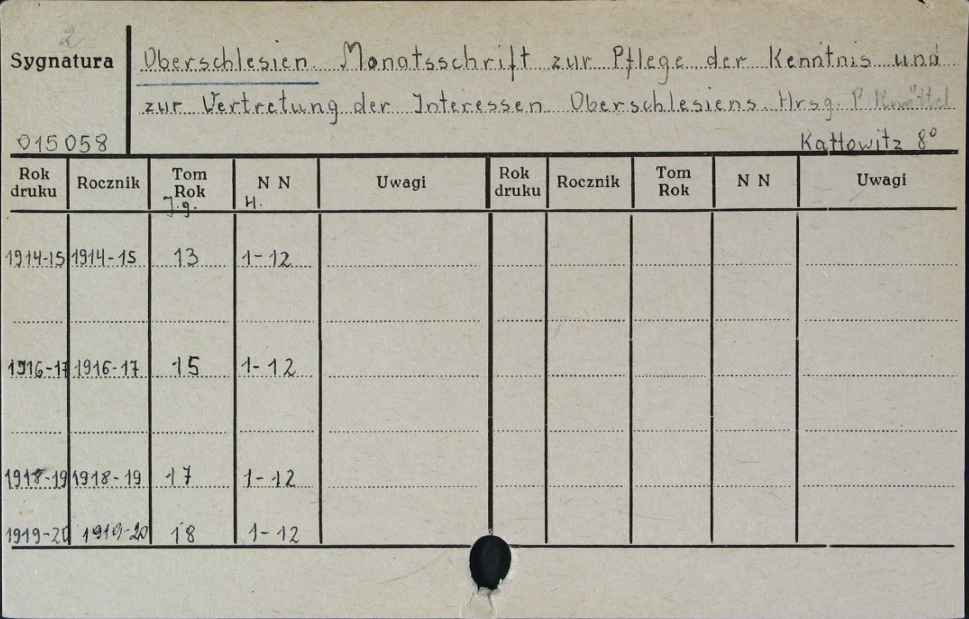 2
Sygnatura
Oberschlesien. Monatsschrift zur Pflege der Kenntnis und
zur Vertretung der Interessen Oberschlesiens. Hrsg. P. Knötel
015058
Kattowitz 8°
Rok druku Rocznik Tom Rok N N Uwagi Rok druku Rocznik Tom Rok N N Uwagi
J.g. H.
1914-15 1914-15 13 1-12
1916-17 1916-17 15 1-12
1918-19 1918-19 17 1-12
1919-20 1919-20 18 1-12